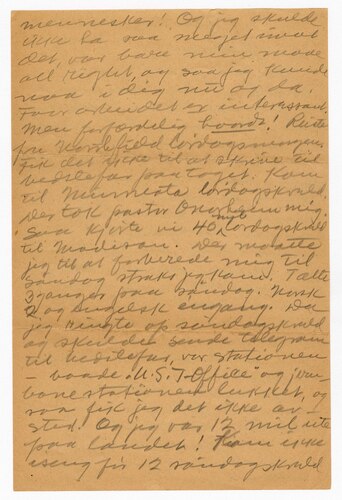 mennesker! Og jeg skulde
ikke ha saa meget imot
det, var bare min mode
all right, og saa jeg kunde
naa i dig nu og da.
For arbeidet er interessant.
Men forfærdelig hardt! Reiste
fra Northfield lördagsmorgen.
Fik det ikke til at skrive til
paa toget. Kom
til Minnesota lördagskveld.
Der tok pastor mig.
Saa kjörte vi 40 mil lördagskveld
til Madison. Der maatte
jeg til at forberede mig til
söndag straks jeg kom. Talte
3 ganger paa söndag. Norsk
2 og engelsk engang. Da
jeg ringte op söndagskveld
og skulde sende telegram
til , var stationen
— baade "U.S. T-Office" og jern-
banestationen lukket, og
saa fik jeg det ikke av-
sted. Og jeg var 12 mil ute
paa landet! Kom ikke
igen för 12 söndagskveld